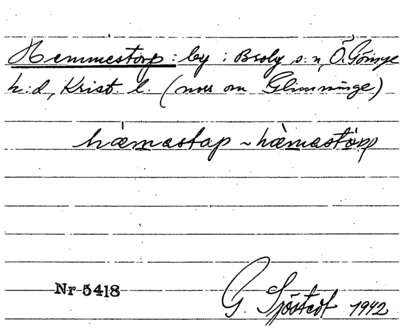 Hemmestorp: by i Broby s:n, Ö. Göinge
h:d, Krist. l. (nv om Glimminge)
hæ̀mastap ~ hæ̀mastòrp
Nr 5418
G. Sjöstedt 1942